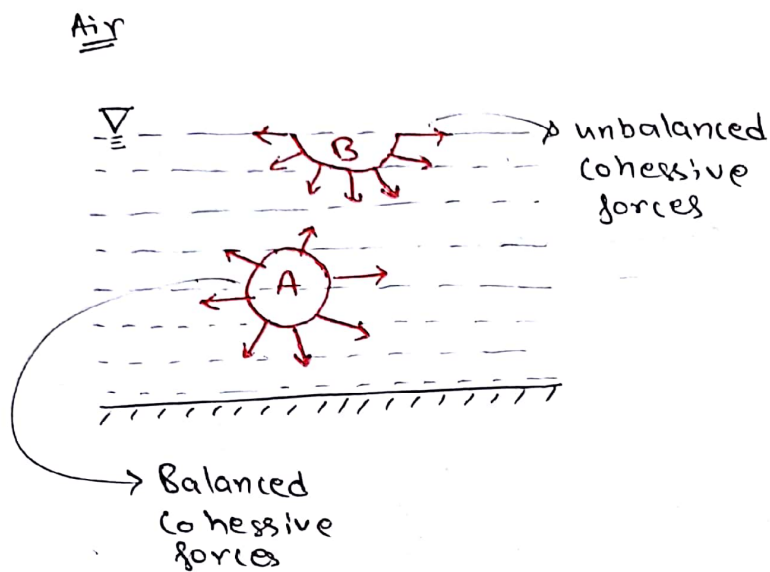 Air
B
unbalanced
cohessive
forces
A
Balanced
cohessive
forces